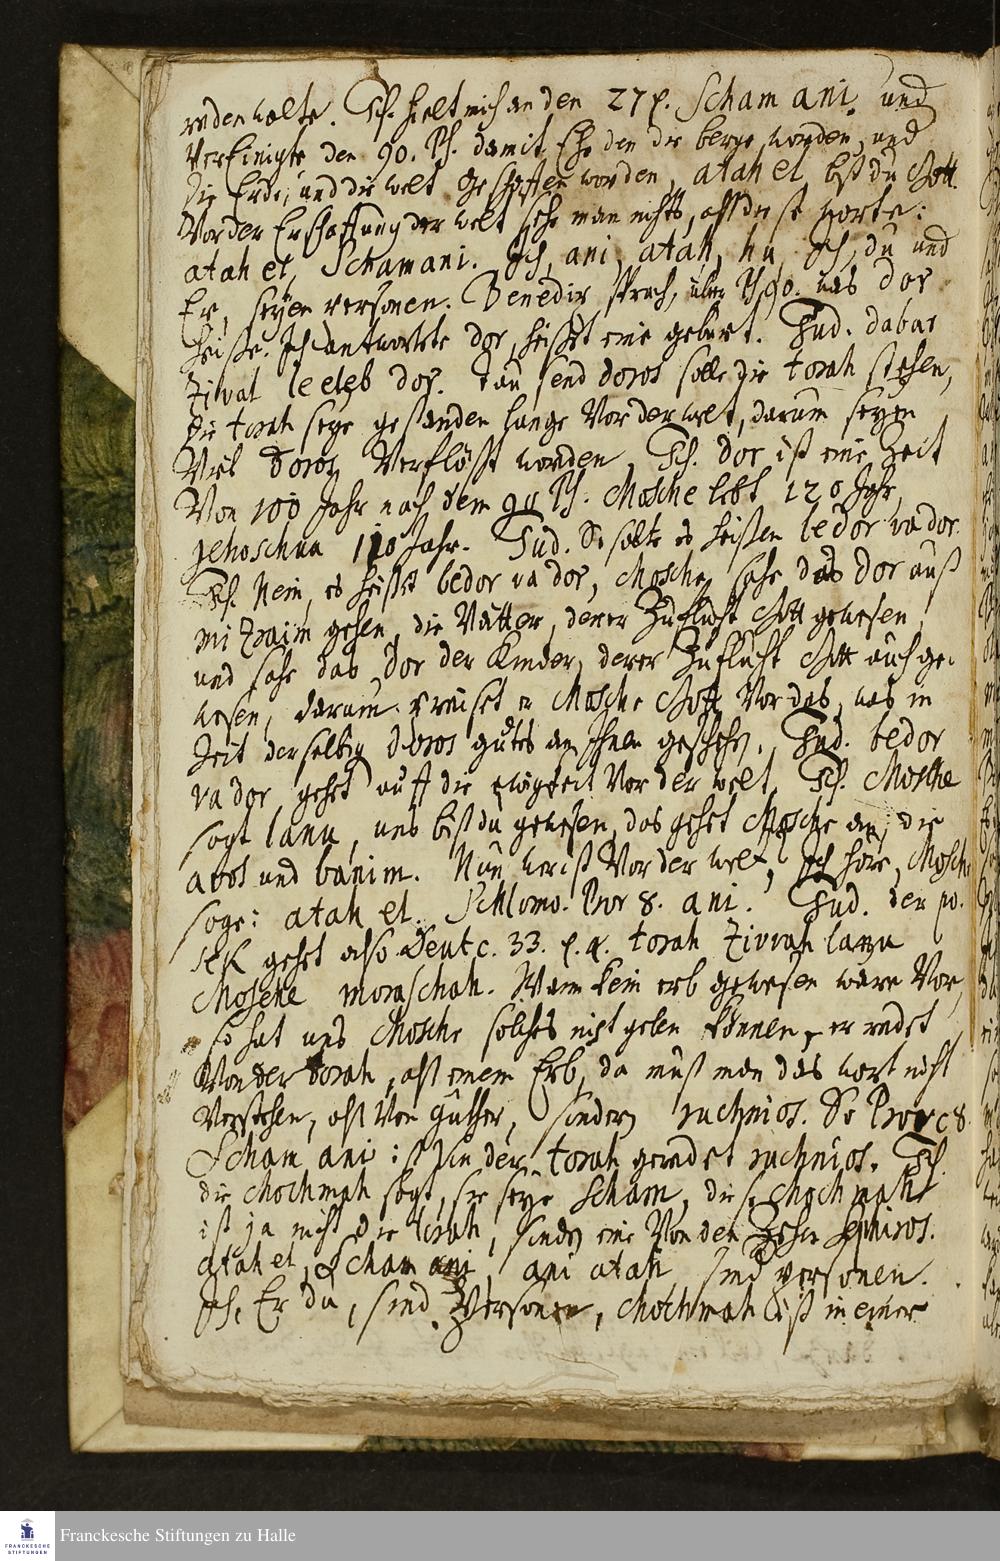 reden wolte. Ich hielt mich an den 27 p. Scham ani. und
Vereinigte den 90. Ps. damit, Ehe den die berge worden, und
die Erde, und die welt geschaffen worden, atah el bist du Gott.
Vor der Erschaffung der welt sehe man nichts, als diese worte:
atah el, Schamani. Ich, ani, atah, hu Ich, du und
Er, seyen personen. Benedix sprach, Ps 90. was dor
heisse. Ich antwortete dor, heisset eine geburt. Jud. dabar
zivat leeleb dor. tausend doros solle die torah stehen,
die torah seye gestanden lange Vor der welt, darum seyen
Viel doros Verflösst worden, Ich. dor ist eine Zeit
Von 100 Jahr nach dem 90 Ps. Mosche lebt 120 Jahr,
Jehoschua 110 Jahr. Jud. So solte es heissen ledor vador.
Ich. Nein, es heisset bedor va dor, Mosche sahe das dor auss
mizraim gehen, die Vätter, deren Zuflucht Gott gewesen,
und sahe das dor der Kinder, derer Zuflucht Gott auch ge-
wesen, darum preiset er Mosche Gott Vor das, was in
Zeit derselben doros gutes an Ihnen geschehen. Jud. bedor
va dor gehet auff die ewigkeit Vor der welt, Ich. Mosche
sagt lanu, uns bist du gewesen, das gehet Mosche an, die
avos und banim. Nun wer ist Vor der welt, Ich höre, Mosche
sage: atah el. Schlomo. Prov 8. ani. Jud. der po-
sek gehet also Deut c. 33. p. 4. torah zivvah lanu
Mosche moraschah. Wann kein erb gewesen wäre Vor,
so hat uns Mosche solches nicht geben können, er redet
Von der torah, alss einem Erb, da muss man das wort nicht
Verstehen, alss Von gütter, sondern ruchnios. So Prov c 8
Scham ani: ist Von der torah geredet ruchnios. Ich.
die chochmah sagt, sie seye Scham, diese chochmah
ist ja nicht die torah, sondern eine Von den Zehen sephiros.
atah el, Scham ani, ani atah, sind personen.
Ich, Er du, sind personen, chochmah ist in einer
Franckesche Stiftungen zu Halle
FRANCKESCHE
STIFTUNGEN